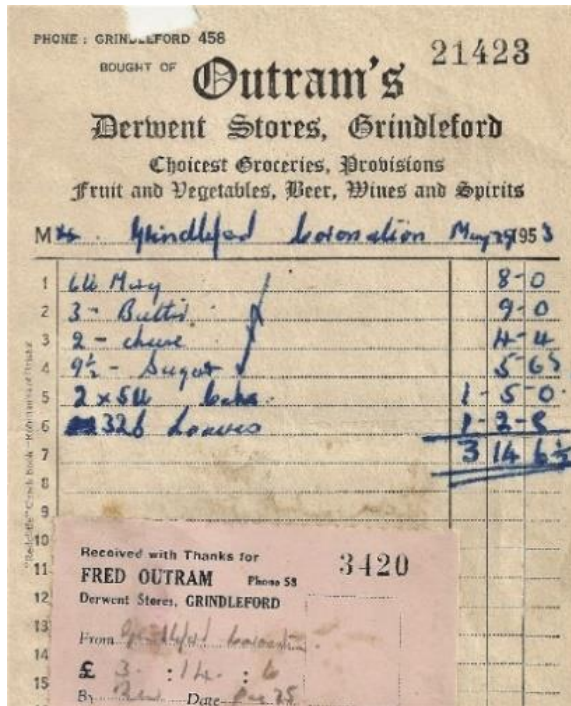 PHONE : GRINDLEFORD 458
21423
BOUGHT OF
Outram's
Derwent Stores, Grindleford
Choicest Groceries, Provisions
Fruit and Vegetables, Beer, Wines and Spirits
M Grindleford Coronation May 29 1953
1 8-0
2 3 - Butter 9-0
3 2 - cheese 4-4
4 9½ - Sugar 5-6½
5 2 x 5lb 1-5-0
6 32 Loaves 1-2-8
7 3 14 6½
8
9
10
11
12
13
14
15
Received with Thanks for
3420
FRED OUTRAM Phone 58
Derwent Stores, GRINDLEFORD
From Grindleford Coronation
£ 3 : 14 : 6
By Date 25